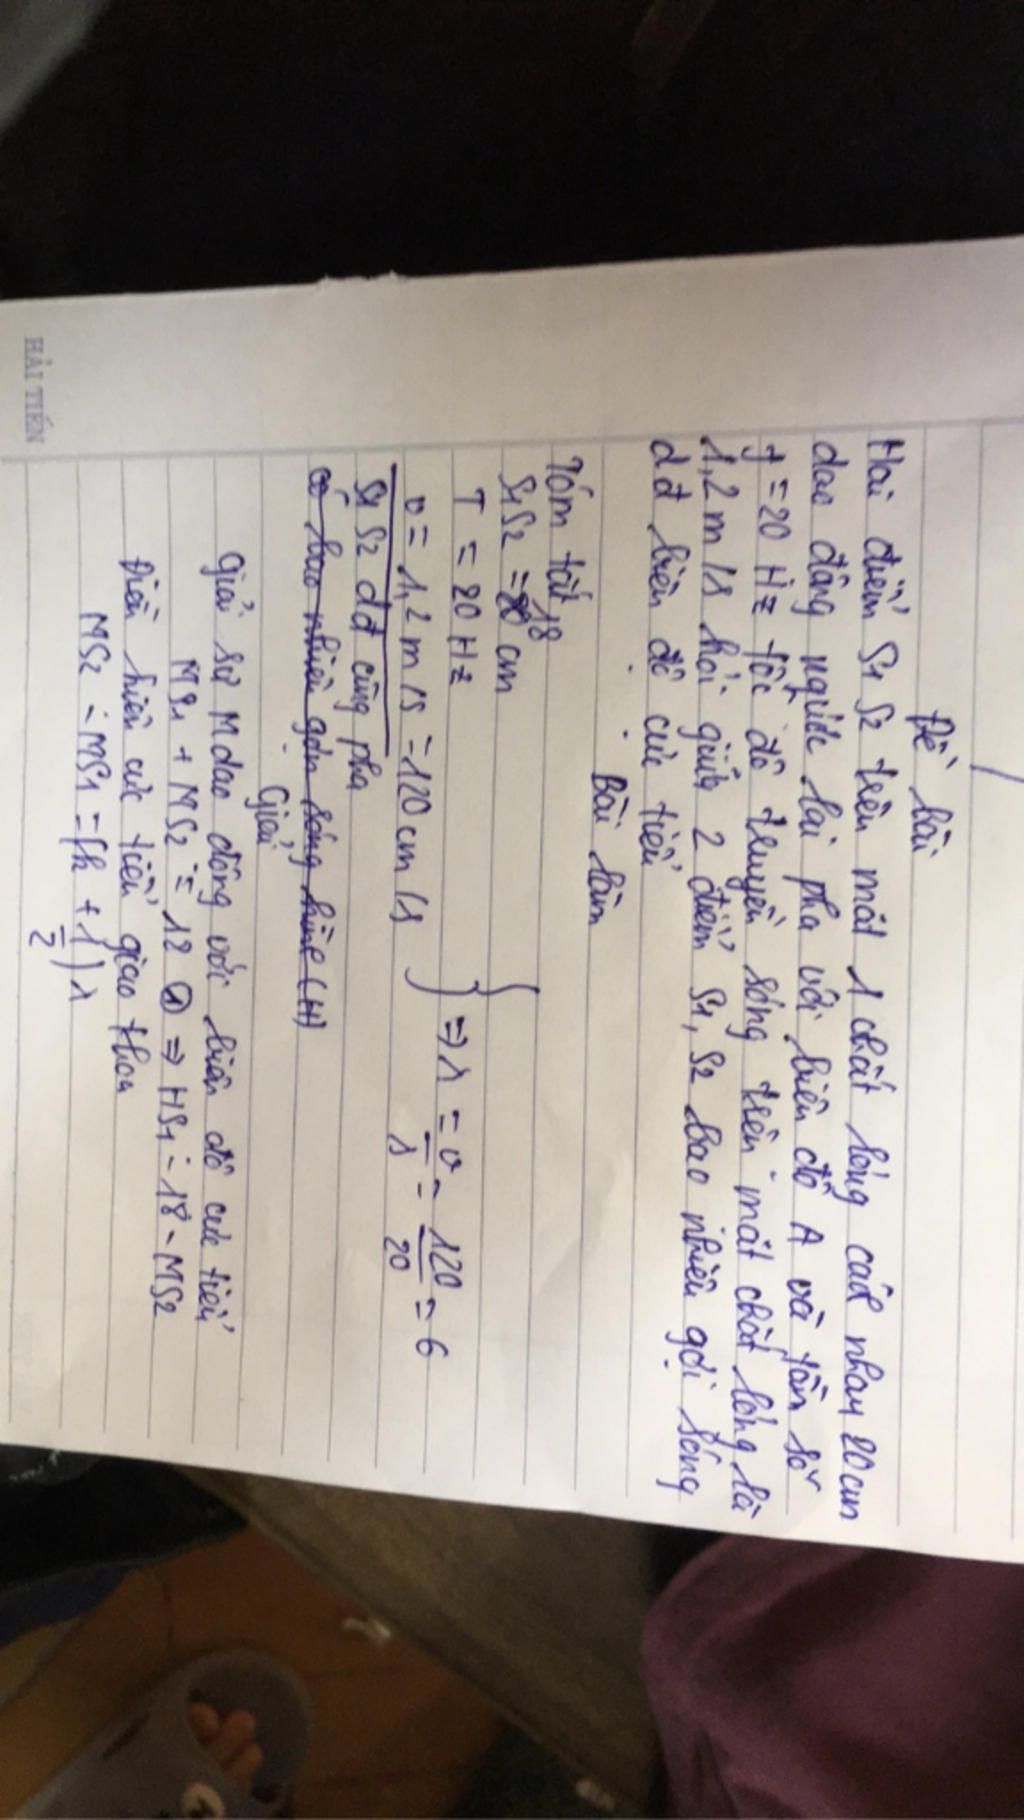 Đề bài
Hai điểm S1 S2 trên mặt 1 chất lỏng cách nhau 20cm
dao động ngược lại pha với biên độ A và tần số
f = 20 Hz tốc độ truyền sóng trên mặt chất lỏng là
1,2 m/s hỏi giữa 2 điểm S1, S2 bao nhiêu gợi sóng
d.đ biên độ cực tiểu
Bài làm
Tóm tắt
S1S2 = 18 cm
T = 20 Hz
v = 1,2 m/s = 120 cm/s } => λ = v = 120 = 6
20
S1 S2 dđ cùng pha
có bao nhiêu gợn sóng
Giải
Giải sử M dao động với biên độ cực tiểu
MS1 + MS2 = 12 => MS1 = 18 - MS2
Điều kiện cực tiểu giao thoa
MS2 - MS1 = (k + 1/2) λ
HẢI TIẾN